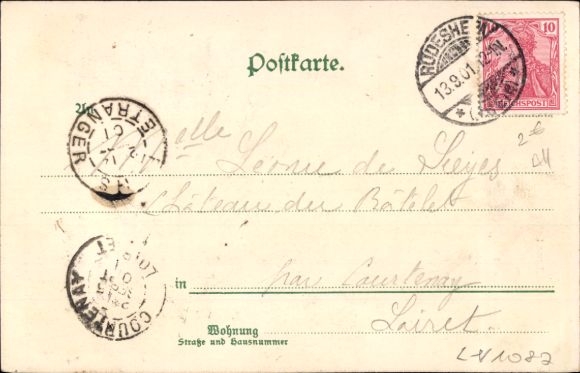 Postkarte.
RÜDESHEIM
13.9.01.12-1N.
10
REICHSPOST
2€
An
ETRANGER
Melle Léonie de Sieyes
Château du Bâtelet
in par Courtenay
Loiret.
COURTENAY
LOIRET
Wohnung
Straße und Hausnummer
LV1087